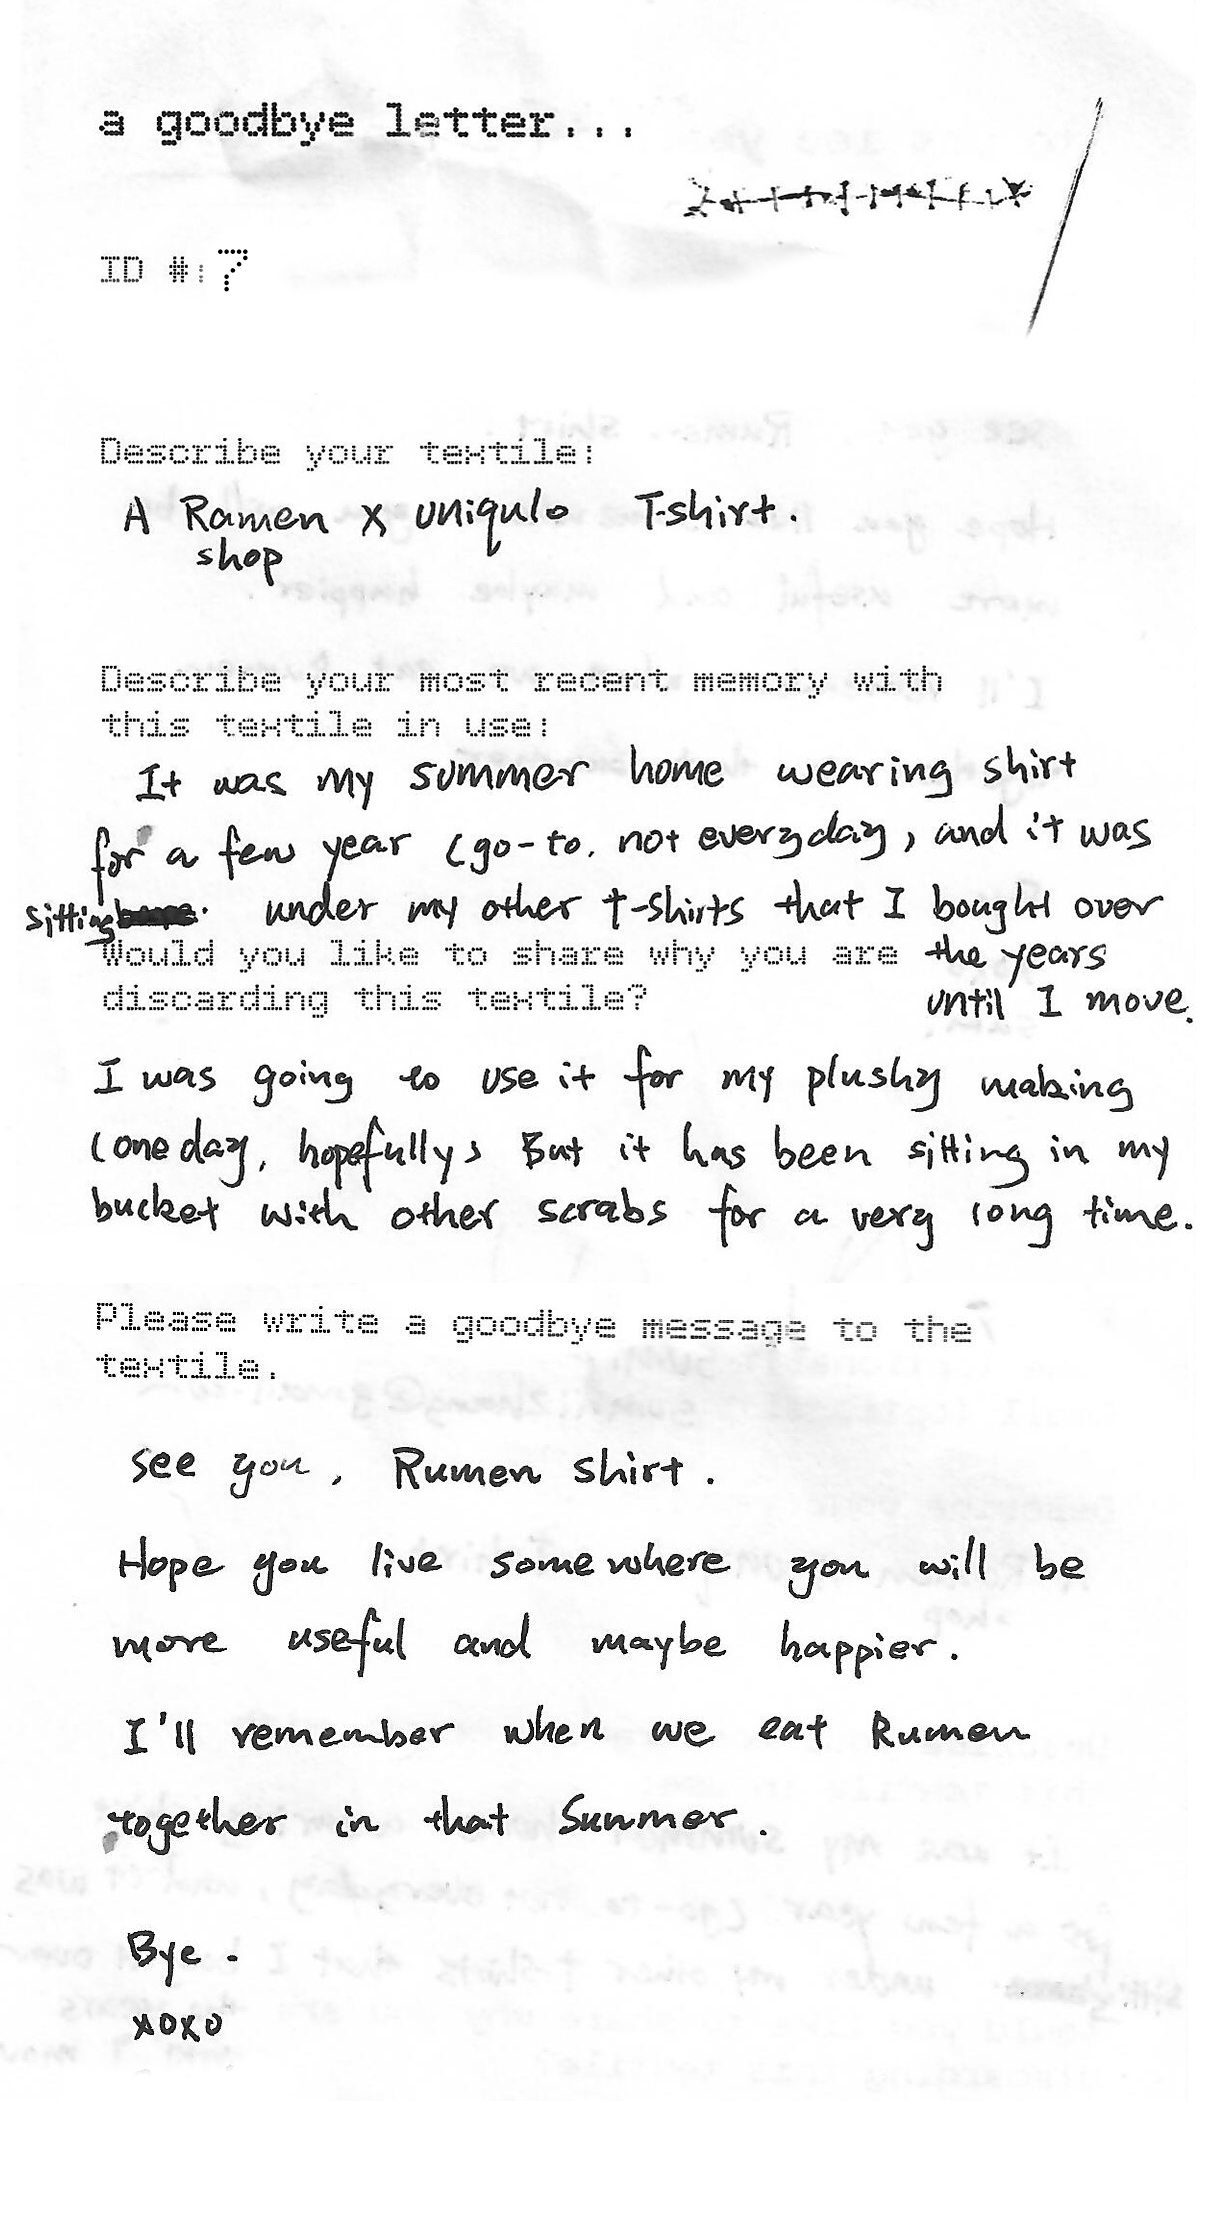 a goodbye letter...
ID #:7
Describe your textile:
A Ramen x uniqulo T-shirt.
shop
Describe your most recent memory with
this textile in use:
It was my summer home wearing shirt
for a few year (go-to. not everyday, and it was
sitting under my other t-shirts that I bought over
the years
until I move.
Would you like to share why you are
discarding this textile?
I was going to use it for my plushy making
(one day, hopefully) But it has been sitting in my
bucket with other scrabs for a very long time.
Please write a goodbye message to the
textile.
see you, Rumen shirt.
Hope you live somewhere you will be
more useful and maybe happier.
I'll remember when we eat Rumen
together in that Summer.
Bye.
xoxo